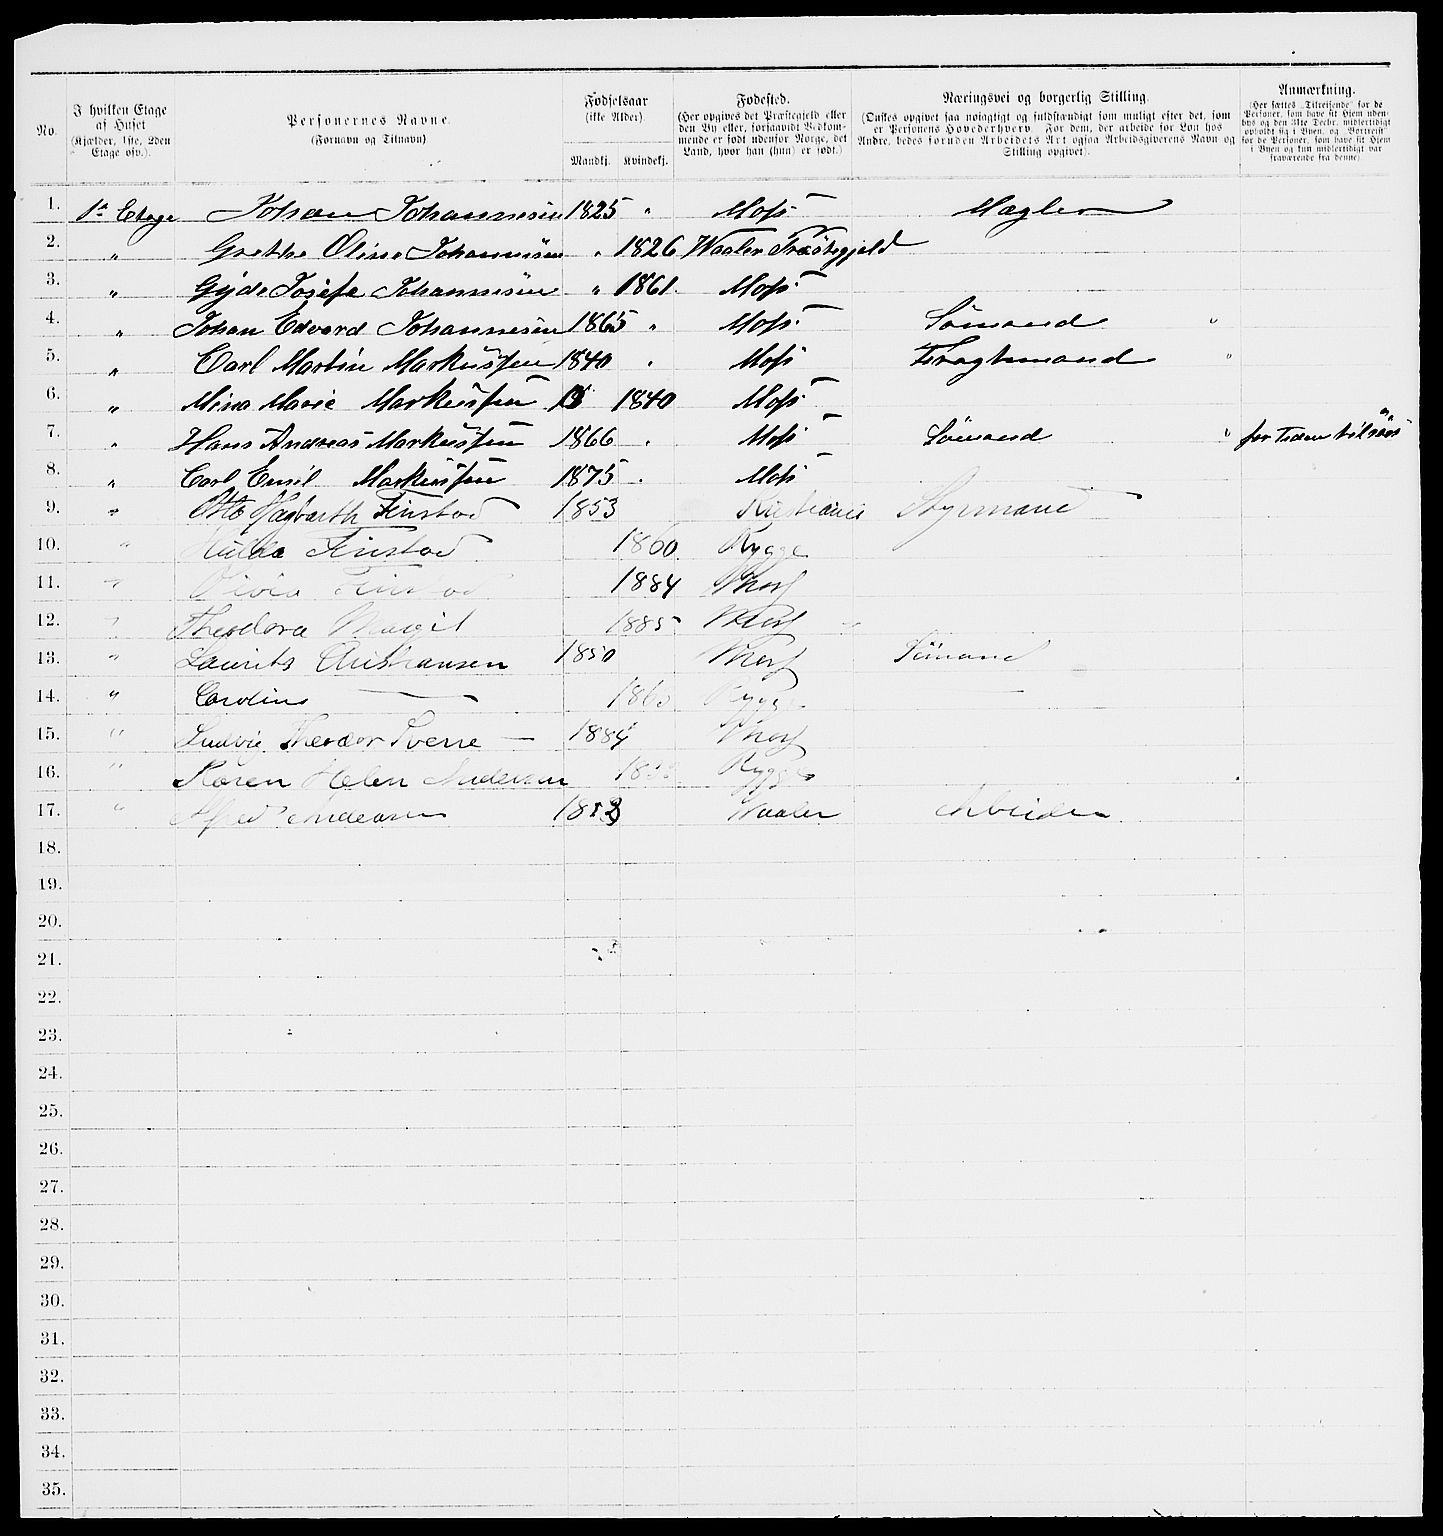 No.
I hvilken Etage
af Huset
(Kjælder, 1ste, 2den
Etage osv.).
Personernes Navne.
(Fornavn og Tilnavn)
Fødselsaar
(ikke Alder).
Mandkj. Kvindekj.
Fødested.
(Her opgives det Præstegjeld eller
den By eller, forsaavidt Vedkom-
mende er født udenfor Norge, det
Land, hvor han (hun) er født.)
Næringsvei og borgerlig Stilling.
(Ønskes opgivet saa nøiagtigt og fuldstændigt som muligt efter det, som
er Personens Hovederhverv. For dem, der arbeide for Løn hos
Andre, bedes foruden Arbeidets Art ogsaa Arbeidsgiverens Navn og
Stilling opgivet).
Anmærkning.
(Her sættes „Tilreisende“ for de
Personer, som have sit Hjem uden-
bys og den 31te Decbr. midlertidigt
opholdt sig i Byen, og „Bortreist“
for de Personer, som have sit Hjem
i Byen og kun midlertidigt var
fraværende fra denne).
1. 1ste Etage Johan Johannesen 1825 " Moss Mægler
2. " Grethe Oline Johannesen " 1826 Waaler Præstegjeld
3. " Gyda Josefe Johannesen " 1861. Moss
4. " Johan Edvard Johannesen 1865 " Moss. Sømand "
5. " Carl Martin Markussen 1840 " Moss Fragtemand "
6. " Mina Marie Markussen 1840 Moss
7. " Hans Andreas Markussen 1866 " Moss Sømand " for Tiden til søes
8. " Carl Emil Markussen 1875 " Moss
9. " Otto Hagbarth Finstad 1853 Kristiania Styrmand
10. " Hulda Finstad 1860 Rygge
11. " Olivia Finstad 1884 Moss
12. " Theodora Magil 1885 Moss
13. " Laurits Christiansen 1850 Moss Sømand
14. " Caroline — 1860 Rygge
15. " Ludvig Theodor Sverre — 1884 Moss
16. " Karen Helen Andersen Rygge
17. " Alfred Andersen Waaler Arbeider
18.
19.
20.
21.
22.
23.
24.
25.
26.
27.
28.
29.
30.
31.
32.
33.
34.
35.